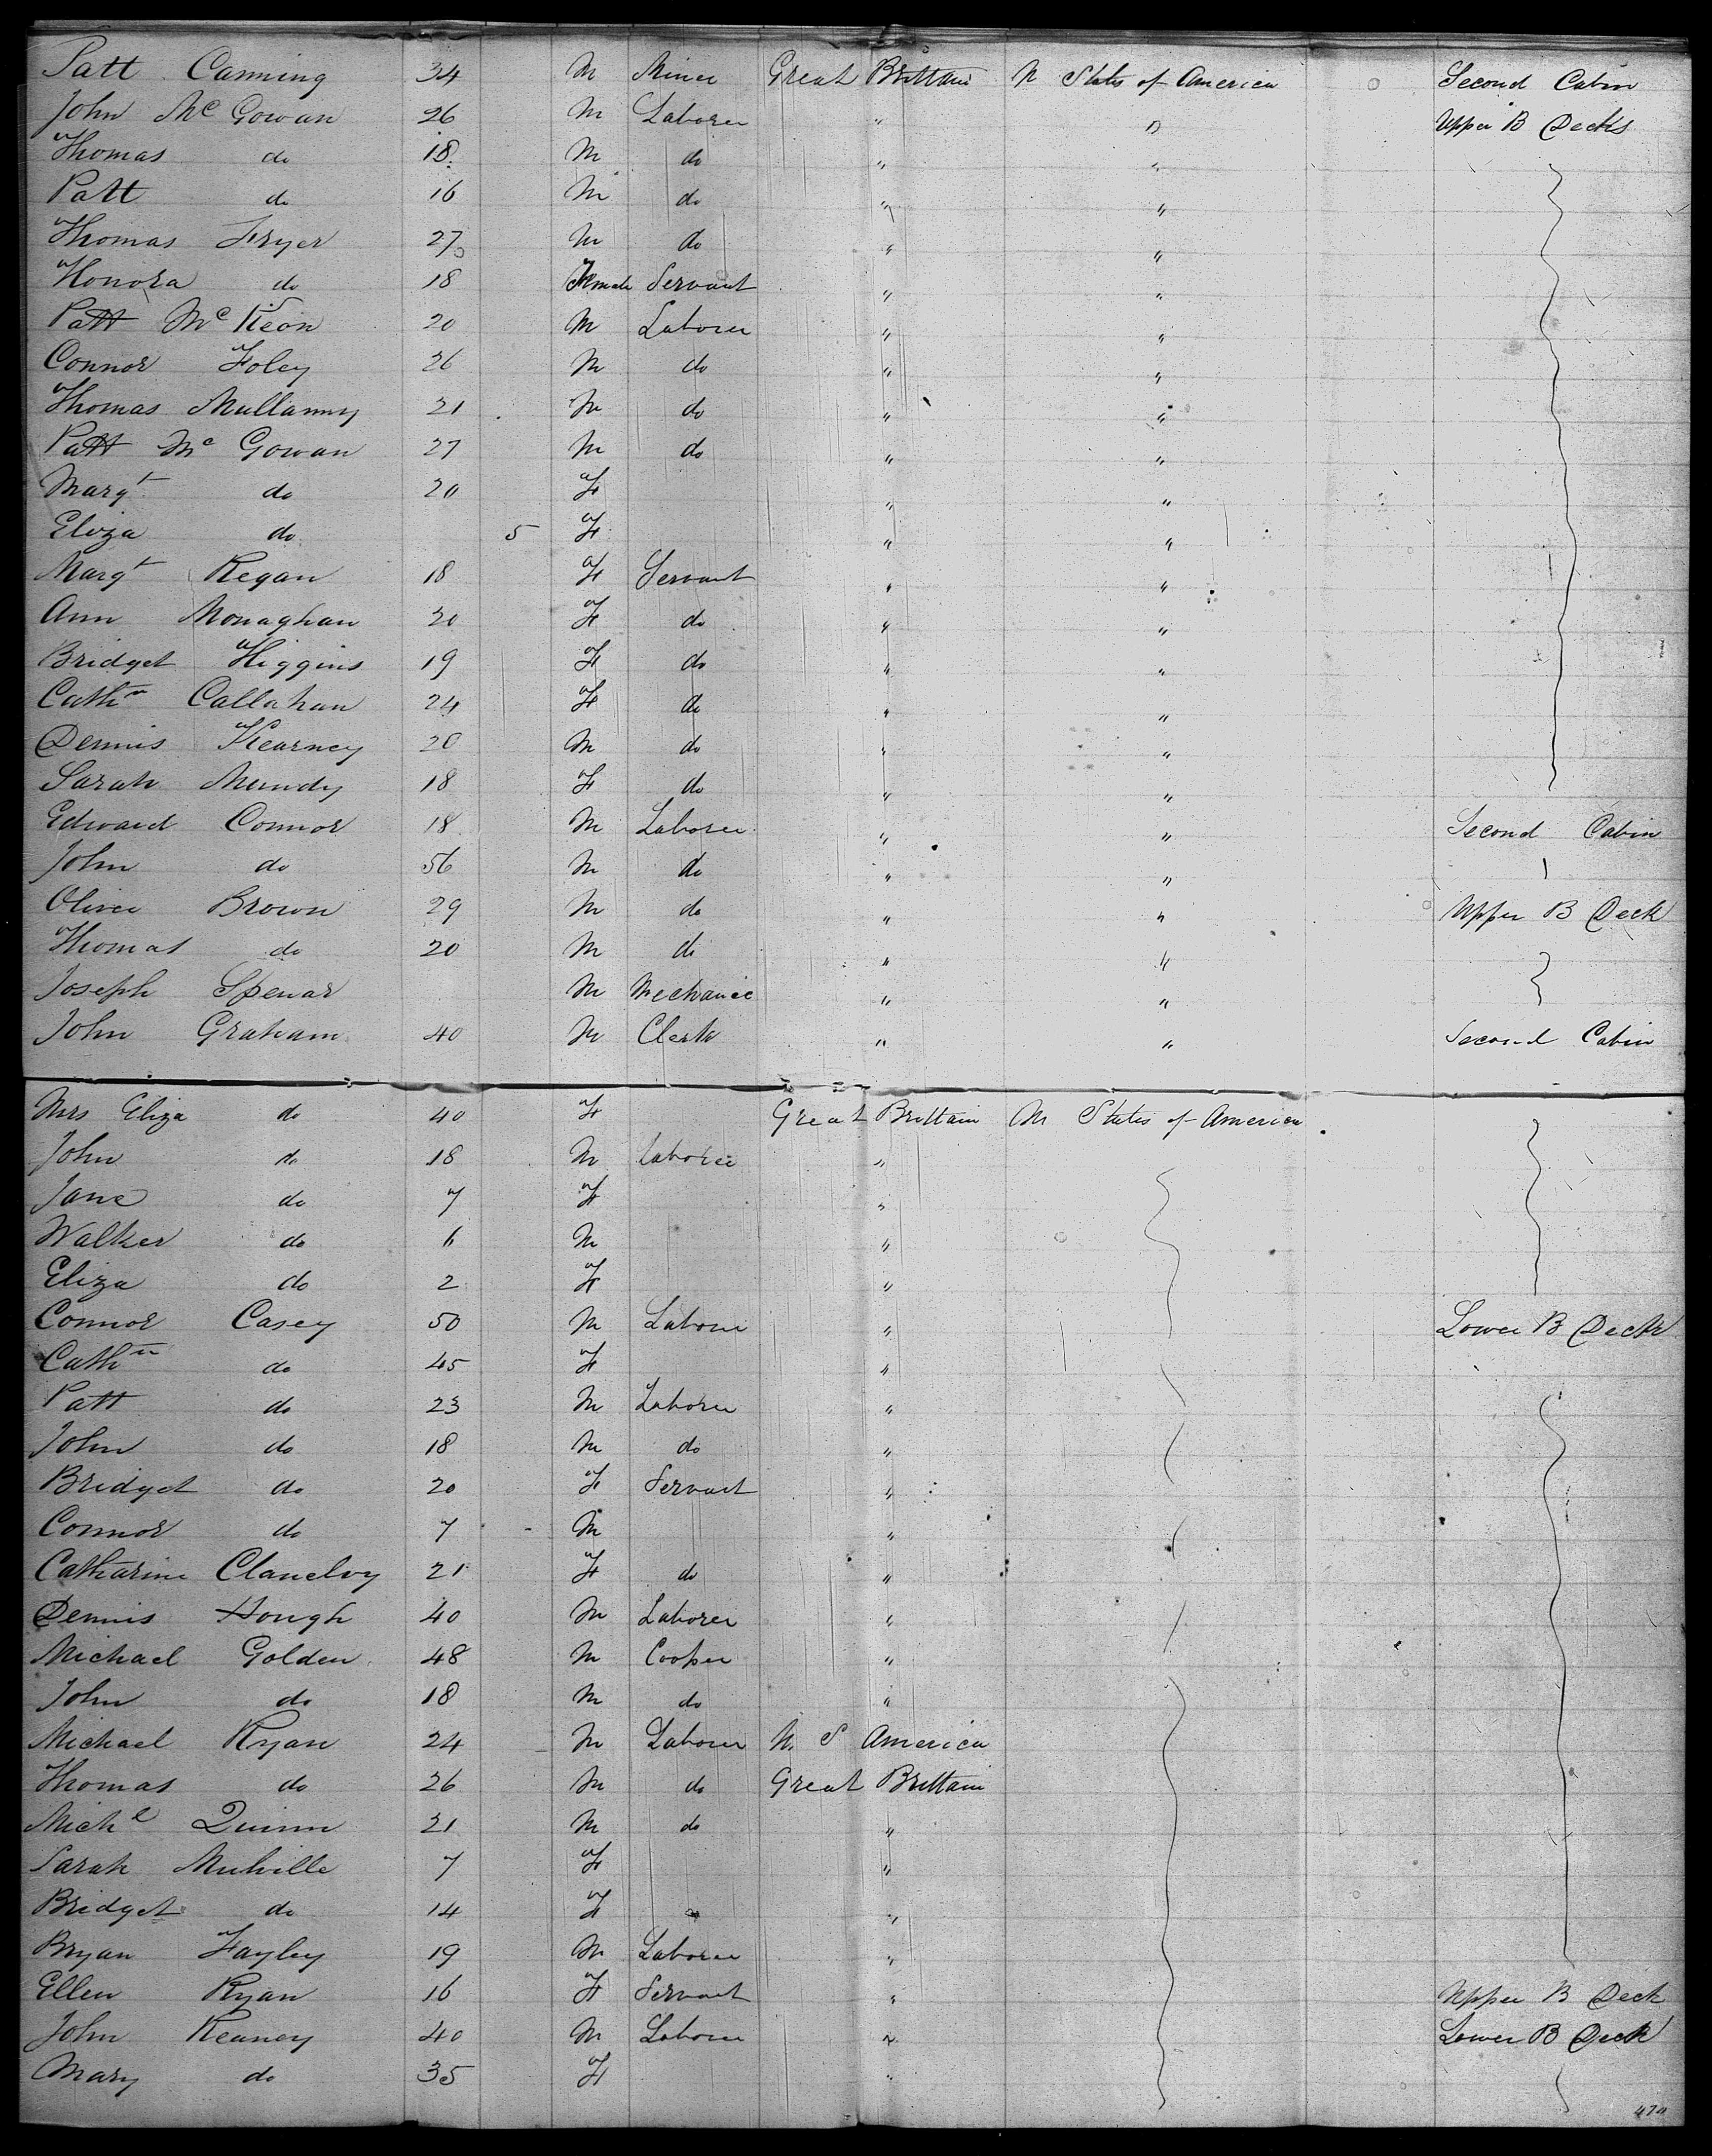 Patt Canning 34 M Miner Great Brittain U States of America Second Cabin
John Mc Gowan 26 M Laborer " " Upper B Decks
Thomas do 18 M do " "
Patt do 16 M do " "
Thomas Fryer 27 M do " "
Honora do 18 Female Servant " "
Patt Mc Keon 20 M Laborer " "
Connor Foley 26 M do " "
Thomas Mullanny 21 M do " "
Patt Mc Gowan 27 M do " "
Margt do 20 F " "
Eliza do 5 F " "
Margt Regan 18 F Servant " "
Ann Monaghan 20 F do " "
Bridget Higgins 19 F do " "
Cathn Callahan 24 F do " "
Dennis Kearney 20 M do " "
Sarah Mundy 18 F do " "
Edward Connor 18 M Laborer " " Second Cabin
John do 56 M do " "
Oliver Brown 29 M do " " Upper B Deck
Thomas do 20 M do " "
Joseph Spenar M Mechanic " "
John Graham 40 M Clerk " " Second Cabin
Mrs Eliza do 40 F Great Brittain Un States of America
John do 18 M Laborer "
Jane do 7 F "
Walker do 6 M "
Eliza do 2 F "
Connor Casey 50 M Laborer " Lower B Deck
Cathn do 45 F "
Patt do 23 M Laborer "
John do 18 M do "
Bridget do 20 F Servant "
Connor do 7 M "
Catharine Clanelvy 21 F do "
Dennis Hough 40 M Laborer "
Michael Golden 48 M Cooper "
John do 18 M do "
Michael Ryan 24 M Laborer U. S America
Thomas do 26 M do Great Brittain
Michl Quinn 21 M do "
Sarah Mulville 7 F "
Bridget do 14 F "
Bryan Fayley 19 M Laborer "
Ellen Ryan 16 F Servant " Upper B Deck
John Keaney 40 M Laborer " Lower B Deck
Mary do 35 F "